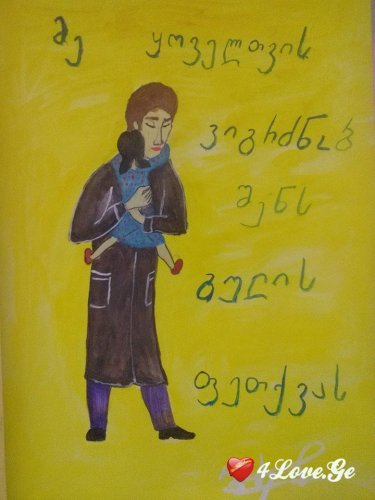 მე ყოველთვის
ვიგრძნობ
შენს
გულის
ფეთქვას
4Love.Ge